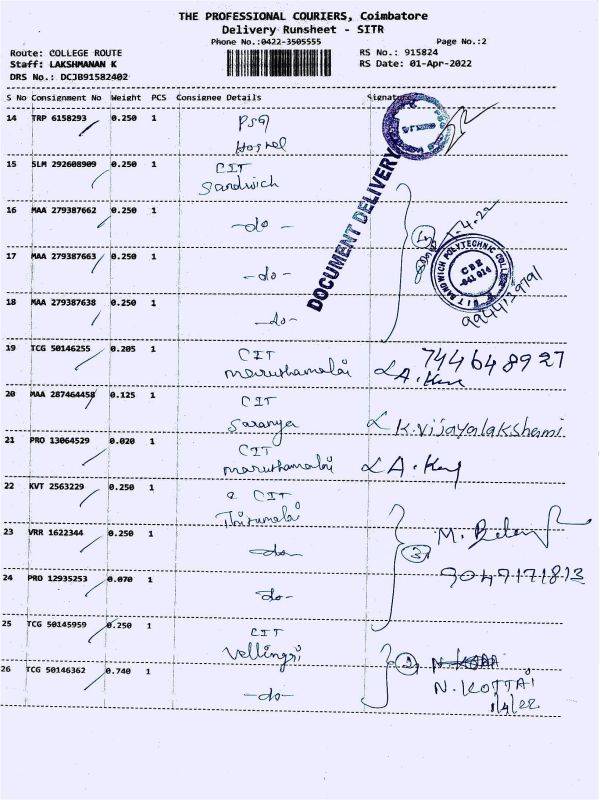 THE PROFESSIONAL COURIERS, Coimbatore
Delivery Runsheet - SITR
Phone No.:0422-3505555 Page No.:2
Route: COLLEGE ROUTE RS No.: 915824
Staff: LAKSHMANAN K RS Date: 01-Apr-2022
DRS No.: DCJB91582402
S No Consignment No Weight PCS Consignee Details Signature
14 TRP 6158293 0.250 1 PSG
Hostel
15 SLM 292608909 0.250 1 CIT
Sandwich
DOCUMENT DELIVERY
16 MAA 279387662 0.250 1 -do-
17 MAA 279387663 0.250 1 -do-
SANDWICH POLYTECHNIC COLLEGE
CBE
-641 014
9944139791
18 MAA 279387638 0.250 1 -do-
19 TCG 50146255 0.205 1 CIT 744648927
Maruthamalai
20 MAA 287464458 0.125 1 CIT
Saranya K.Vijayalakshemi
21 PRO 13064529 0.020 1 CIT
Maruthamalai
22 KVT 2563229 0.250 1 CIT
Thirumalai
23 VRR 1622344 0.250 1 -do- 3
9047171813
24 PRO 12935253 0.070 1 -do-
25 TCG 50145959 0.250 1 CIT
Vellingiri 2
26 TCG 50146362 0.740 1 -do- N.KOTTAI
1/4/22